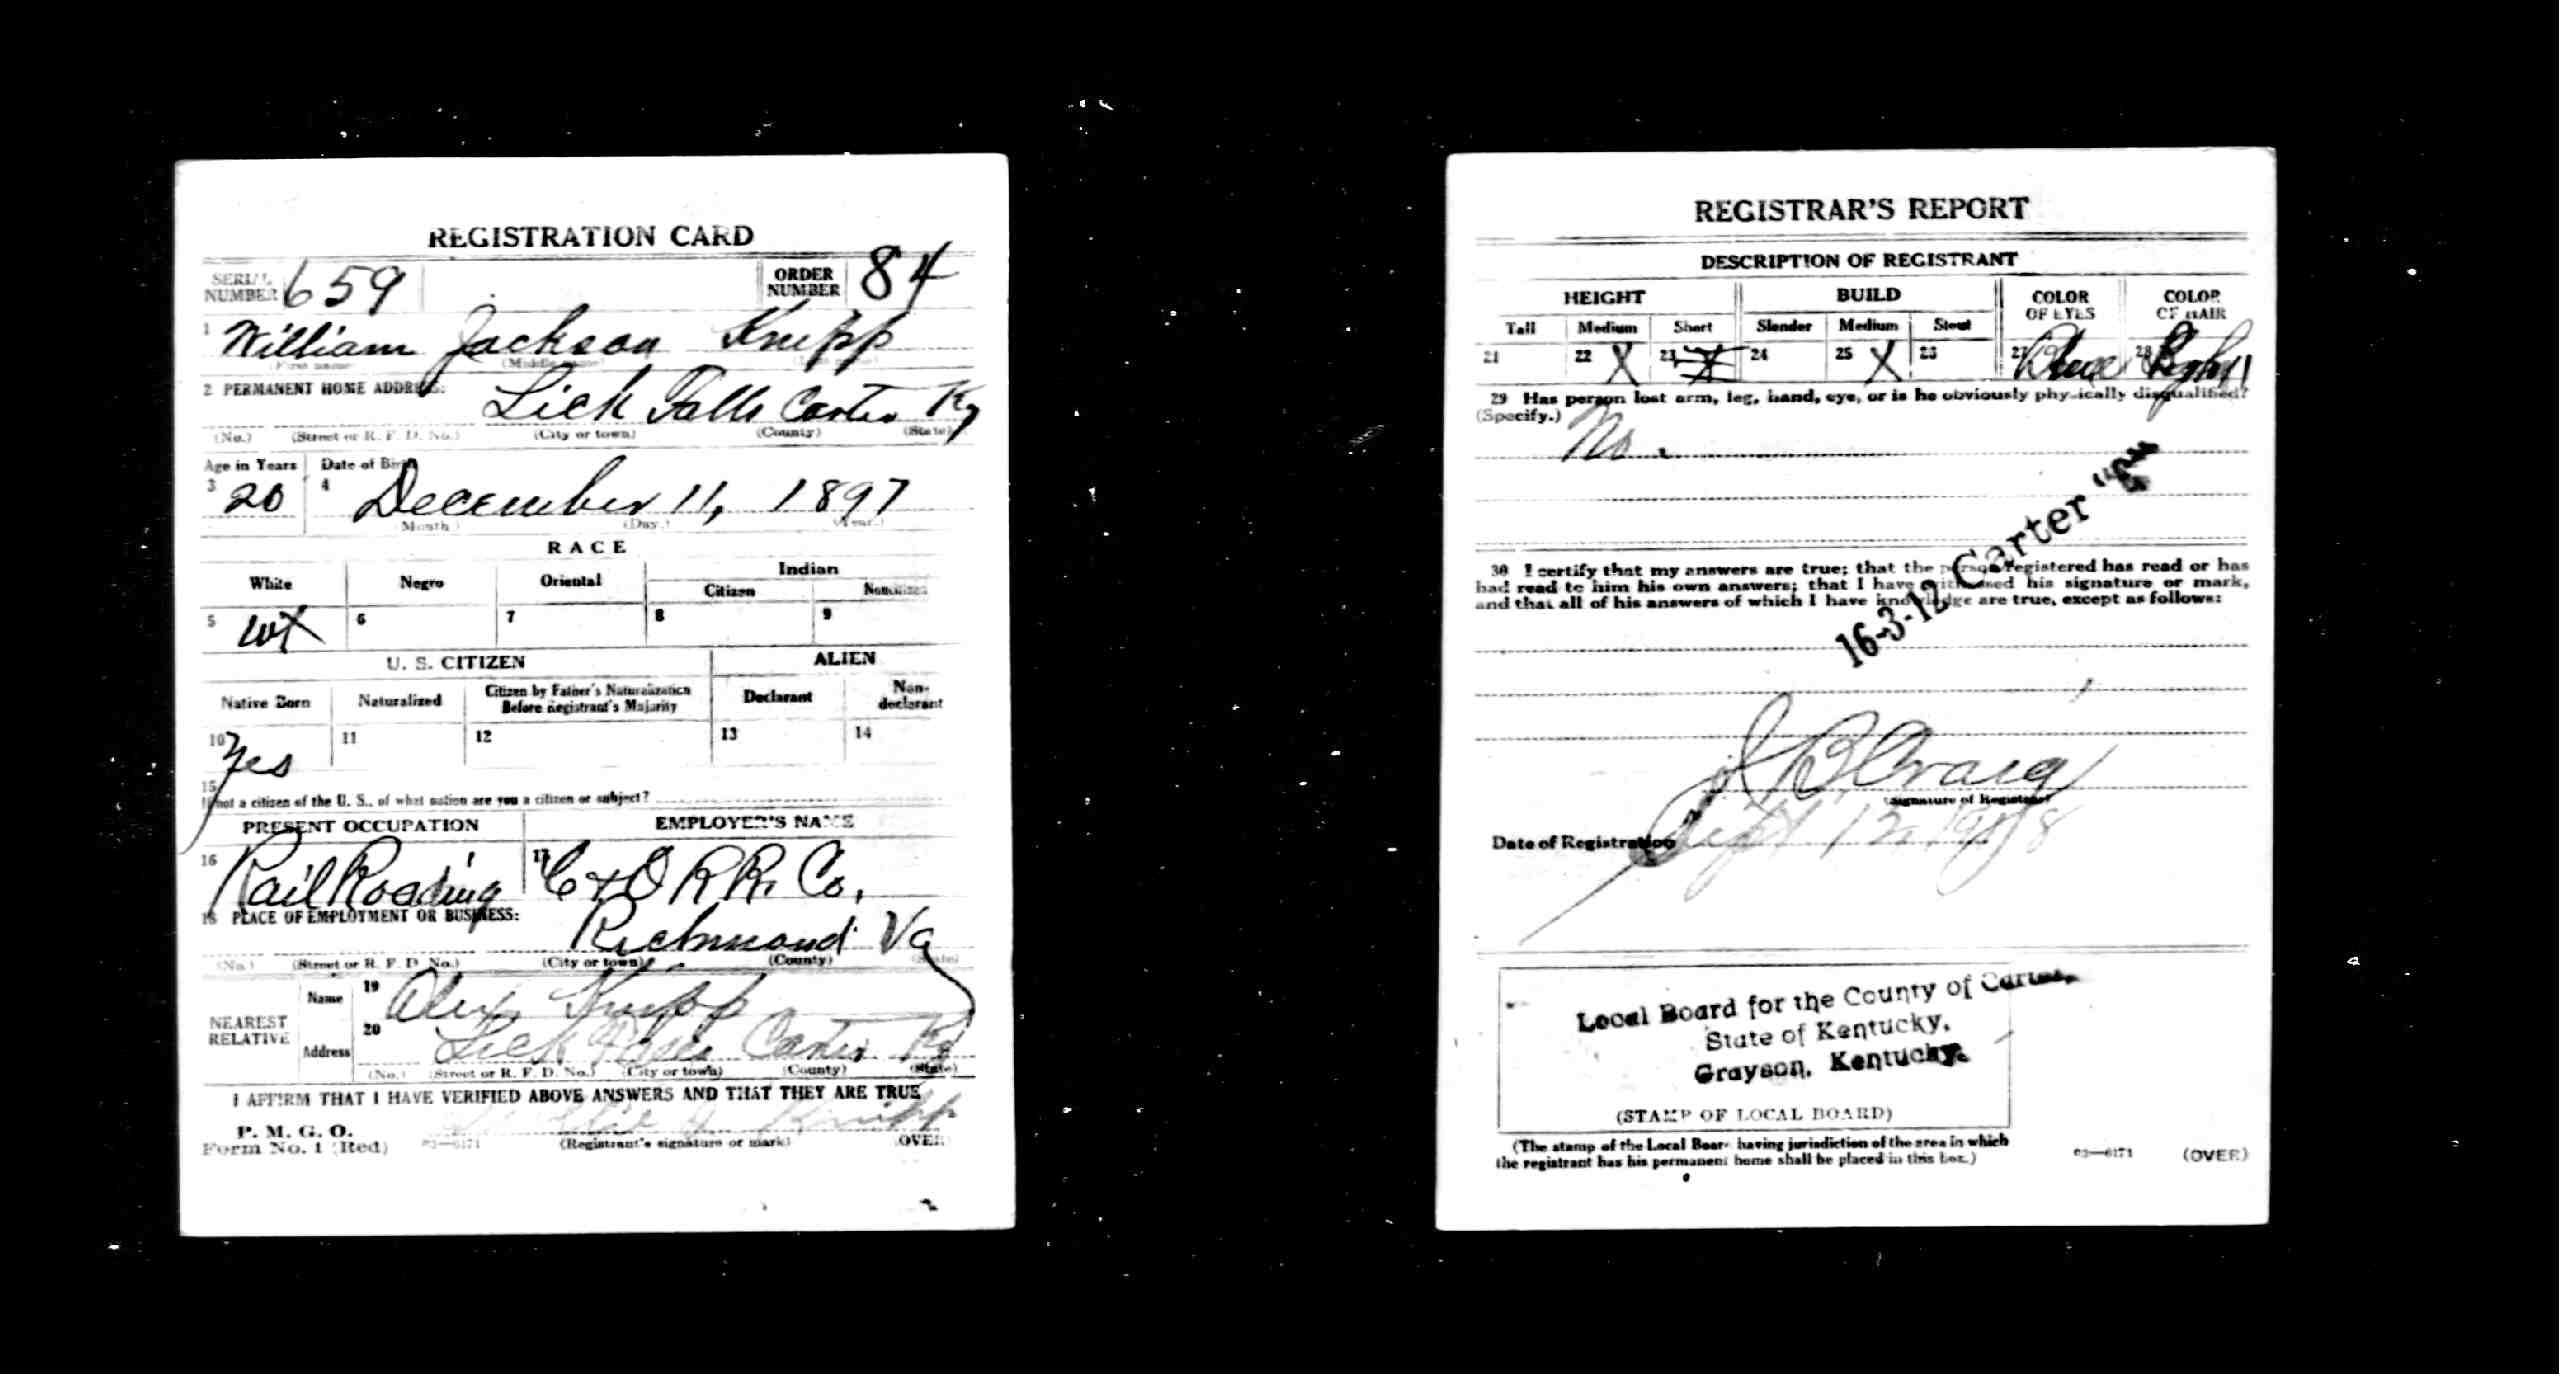 REGISTRATION CARD
SERIAL NUMBER 659 ORDER NUMBER 84
1 William Jackson Knipp
(First name) (Middle name) (Last name)
2 PERMANENT HOME ADDRESS:
Lick Falls Carter Ky
(No.) (Street or R. F. D. No.) (City or town) (County) (State)
Age in Years Date of Birth
3 20 4 December 11, 1897
(Month.) (Day.) (Year.)
RACE
White Negro Oriental Indian
Citizen Noncitizen
5 6 7 8 9
U. S. CITIZEN ALIEN
Native Born Naturalized Citizen by Father's Naturalization Before Registrant's Majority Declarant Non-declarant
10 Yes 11 12 13 14
15 If not a citizen of the U. S., of what nation are you a citizen or subject?
PRESENT OCCUPATION EMPLOYER'S NAME
16 Rail Roading 17 C & O R R. Co.
18 PLACE OF EMPLOYMENT OR BUSINESS:
Richmond Va
(No.) (Street or R. F. D. No.) (City or town) (County) (State)
NEAREST RELATIVE
Name 19 Alex Knipp
Address 20 Lick Falls Carter Ky
(No.) (Street or R. F. D. No.) (City or town) (County) (State)
I AFFIRM THAT I HAVE VERIFIED ABOVE ANSWERS AND THAT THEY ARE TRUE
P. M. G. O.
Form No. 1 (Red) 03—6171 (Registrant's signature or mark) (OVER)
J Knipp
REGISTRAR'S REPORT
DESCRIPTION OF REGISTRANT
HEIGHT BUILD COLOR OF EYES COLOR OF HAIR
Tall Medium Short Slender Medium Stout
21 22 X 23 24 25 X 26 27 Blue 28 Light
29 Has person lost arm, leg, hand, eye, or is he obviously physically disqualified?
(Specify.) No.
16-3-12 Carter
30 I certify that my answers are true; that the person registered has read or has
had read to him his own answers; that I have witnessed his signature or mark,
and that all of his answers of which I have knowledge are true, except as follows:
J B Craig
(Signature of Registrar)
Date of Registration Sept 12, 1918
Local Board for the County of Carter,
State of Kentucky,
Grayson, Kentucky.
(STAMP OF LOCAL BOARD)
(The stamp of the Local Board having jurisdiction of the area in which
the registrant has his permanent home shall be placed in this box.)
03—6171 (OVER)